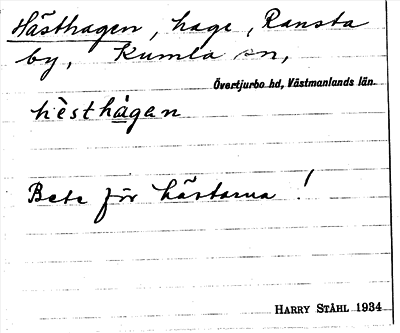 Hästhagen, hage, Ransta
by, Kumla sn,
Övertjurbo hd, Västmanlands län.
hèsthågen
Bete för hästarna!
HARRY STÅHL 1934